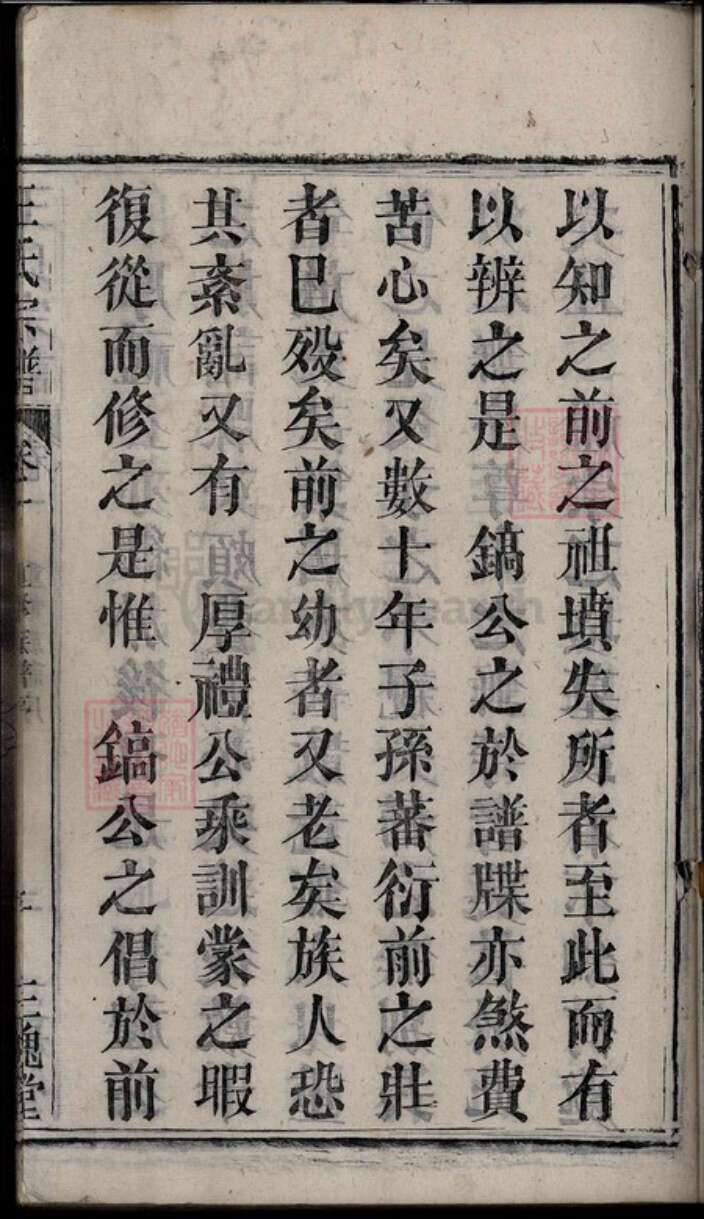 以知之前之祖墳失所者至此而有
以辨之是 鎬公之於譜牒亦煞費
苦心矣又數十年子孫蕃衍前之壯
者巳歿矣前之幼者又老矣族人恐
其紊亂又有 厚禮公乘訓蒙之暇
復從而修之是惟 鎬公之倡於前
王氏宗譜 卷一
三槐堂